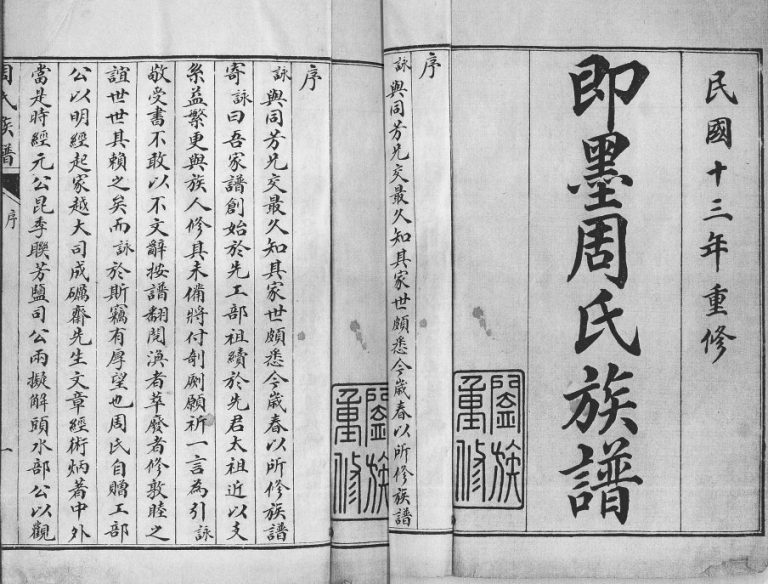 民國十三年重修
即墨周氏族譜
闔族
重修
序
詠與同芳兄交最久知其家世頗悉今歲春以所修族譜
闔族
重修
序
詠與同芳兄交最久知其家世頗悉今歲春以所修族譜
寄詠曰吾家譜創始於先工部祖續於先君太祖近以支
系益繁更與族人修其未備將付剞劂願祈一言為引詠
敬受書不敢以不文辭按譜翻閱渙者萃廢者修敦睦之
誼世世其賴之矣而詠於斯竊有厚望也周氏自贈工部
公以明經起家越大司成礪齋先生文章經術炳著中外
當是時經元公昆季聮芳鹽司公兩擬解頭水部公以觀
周氏族譜
序
一